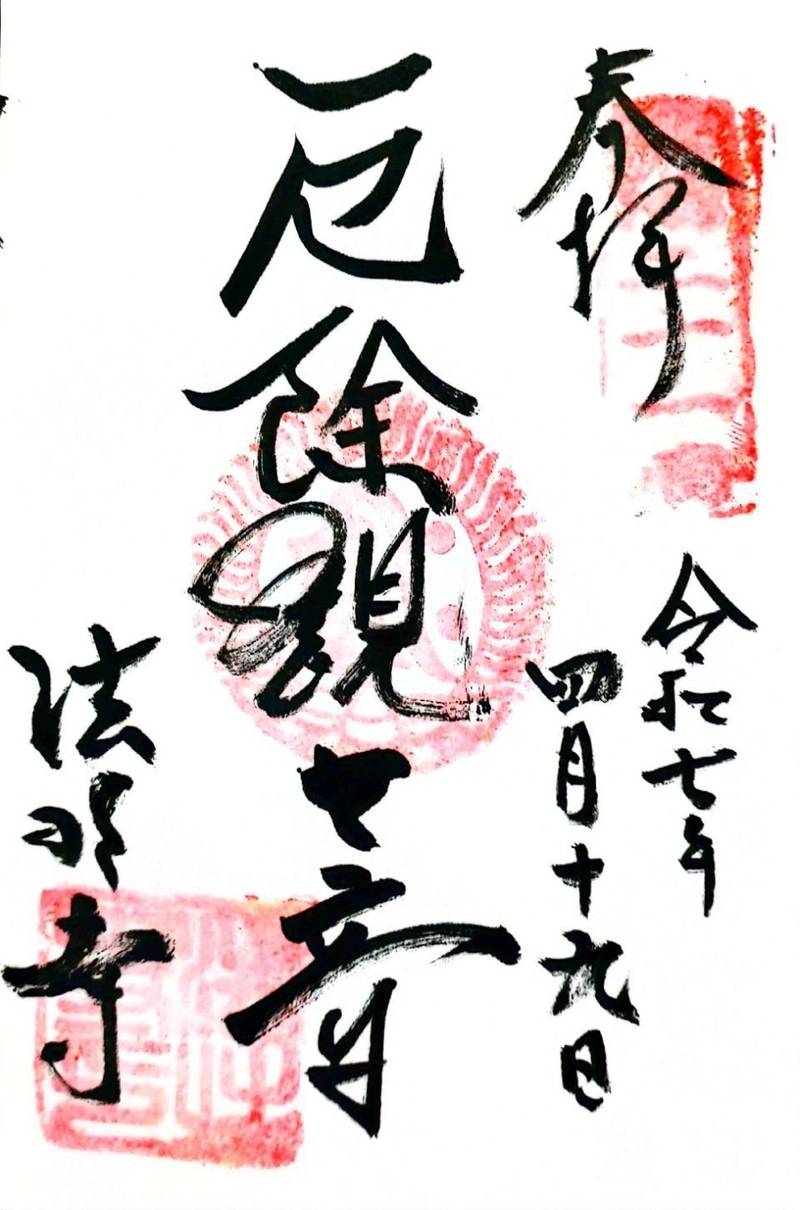 奉拝
令和七年
四月十九日
厄除観世音
法明寺